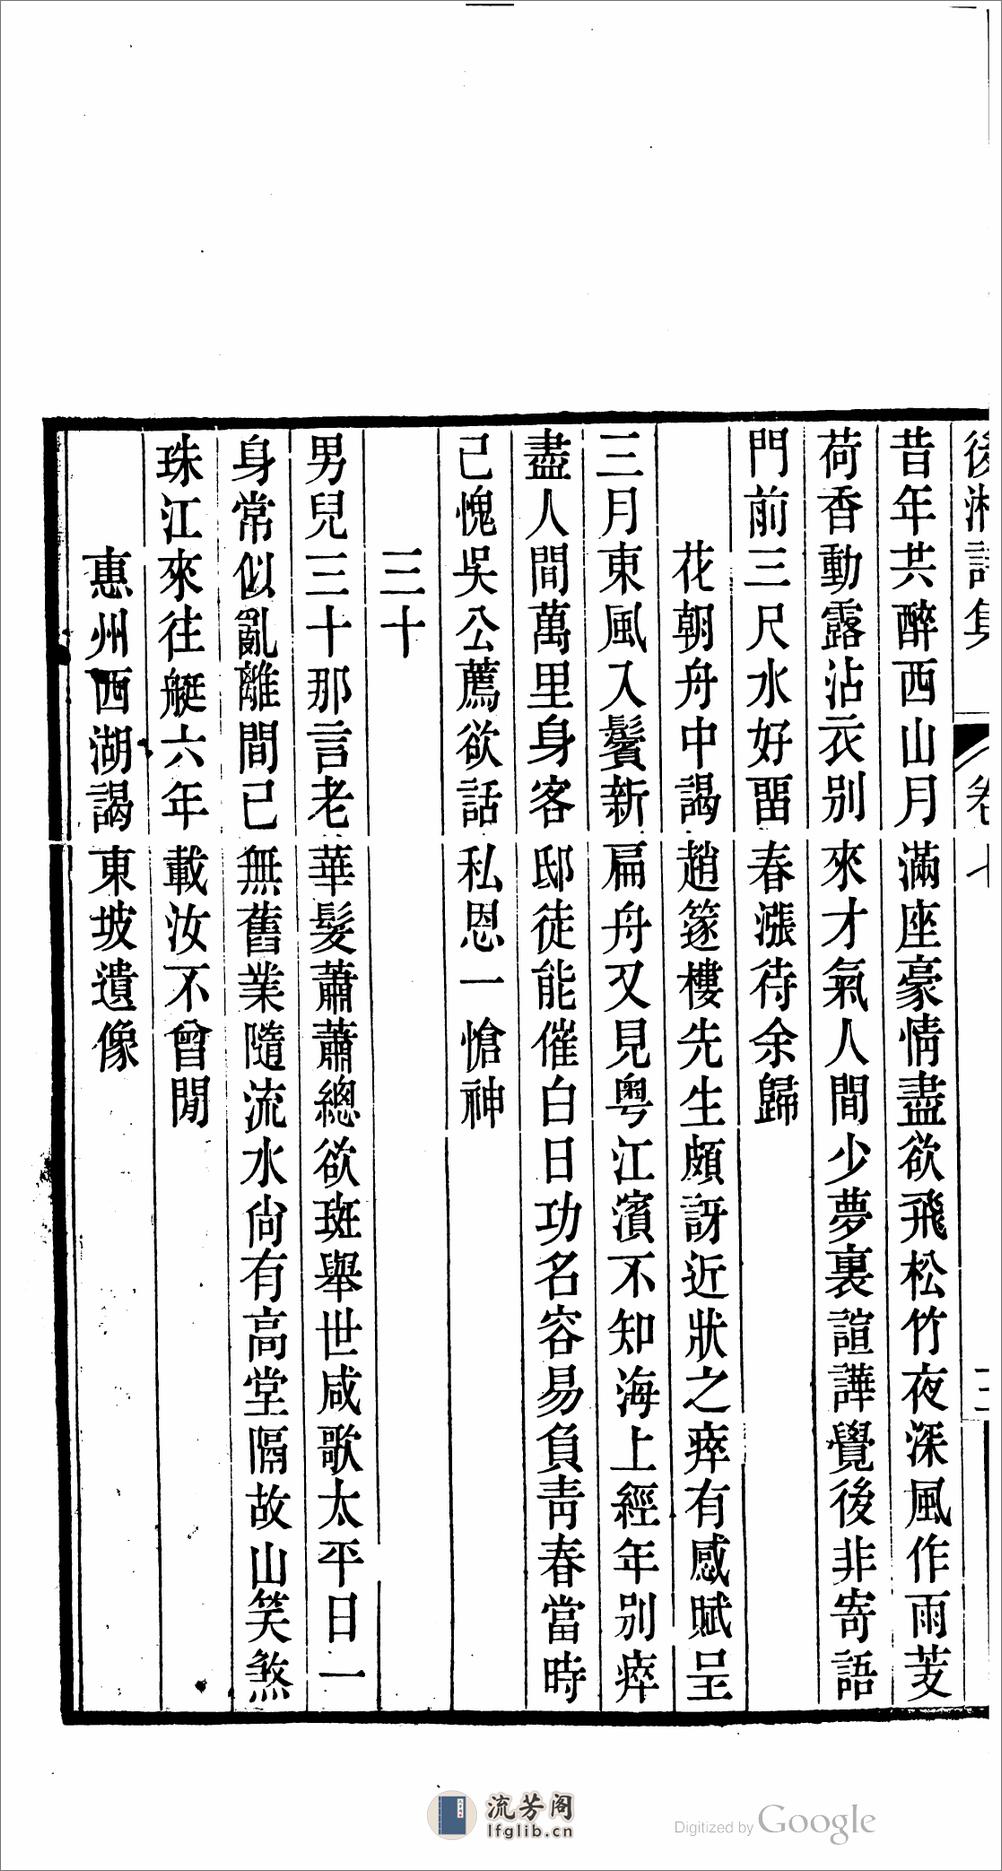 昔年共醉西山月滿座豪情盡欲飛松竹夜深風作雨芰
荷香動露沾衣別來才氣人間少夢裏諠譁覺後非寄語
門前三尺水好畱春漲待余歸
花朝舟中謁趙篴樓先生頗訝近狀之瘁有感賦呈
三月東風入鬢新扁舟又見粤江濱不知海上經年別瘁
盡人間萬里身客邸徒能催白日功名容易負靑春當時
己愧吳公薦欲話私恩一愴神
三十
男兒三十那言老華髮蕭蕭總欲斑舉世咸歌太平日一
身常似亂離間已無舊業隨流水尙有高堂隔故山笑煞
珠江來往艇六年載汝不曾閒
惠州西湖謁東坡遺像
流芳阁
lfglib.cn
Digitized by Google